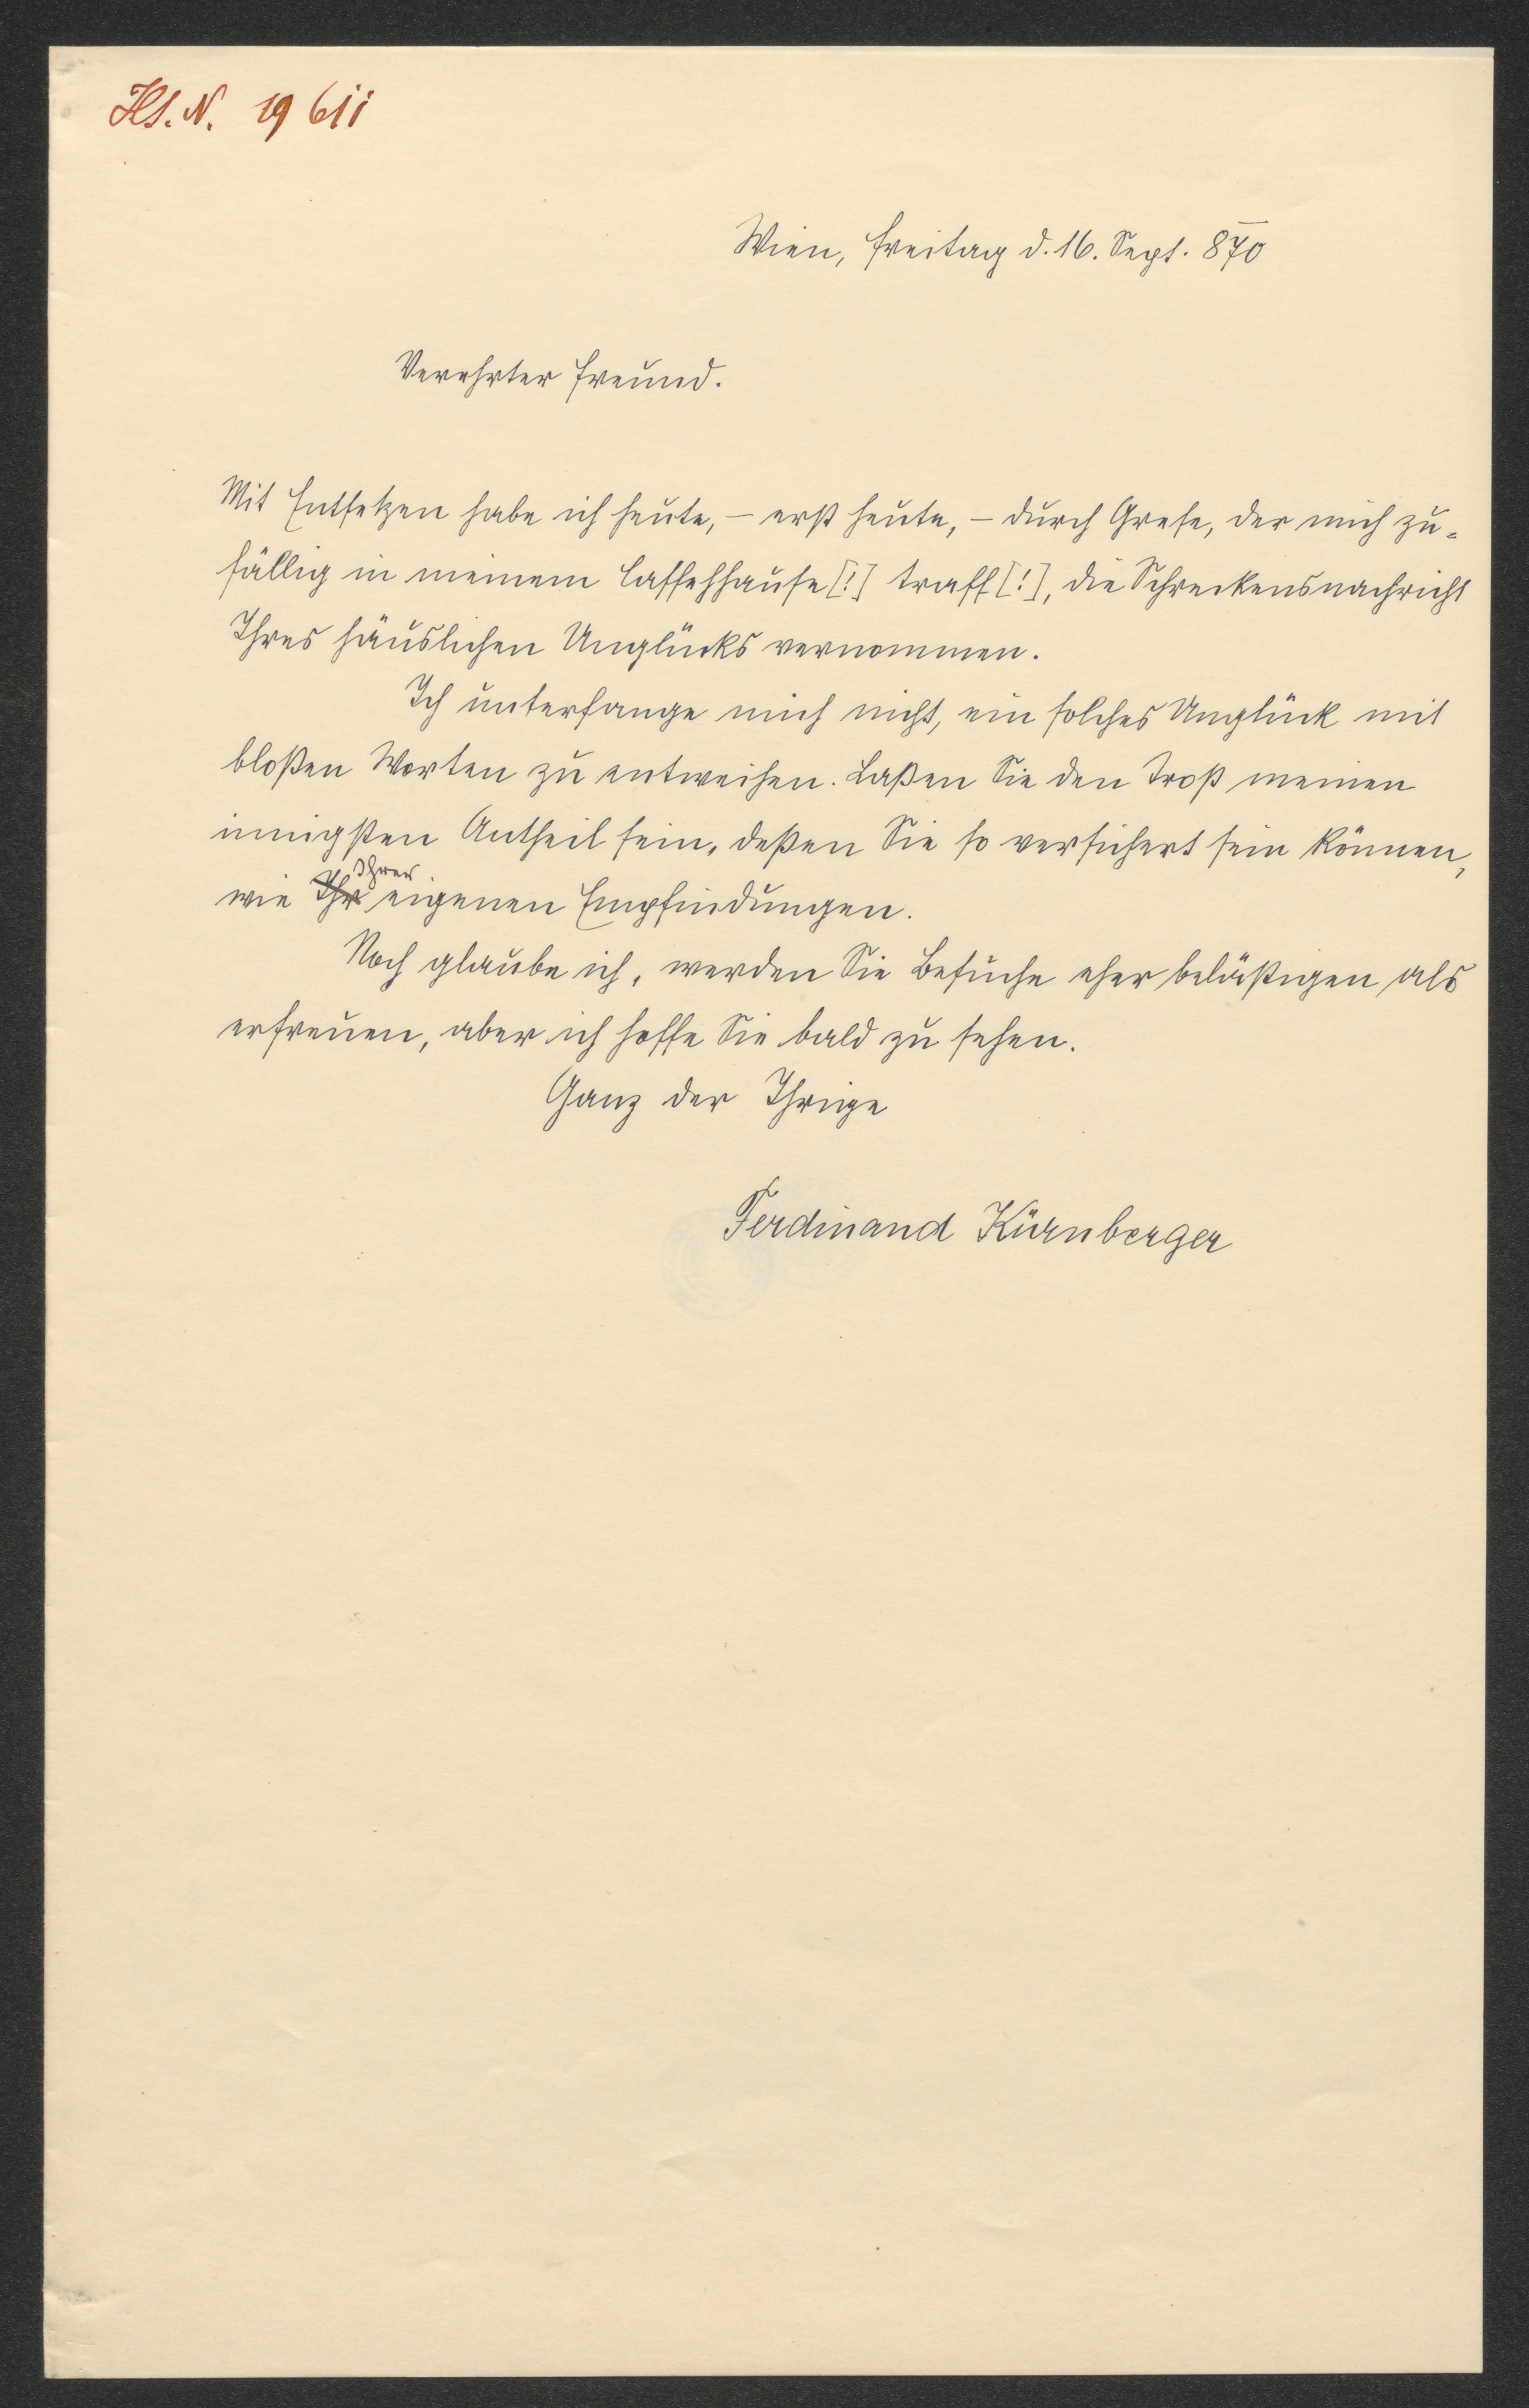 Hs. N. 19 611
Wien, Freitag d. 16. Sept. 870
Verehrter Freund.
Mit Entsetzen habe ich heute, – erst heute, – durch Grefe, der mich zu-
fällig in meinem Caffehhause [!] traff [!], die Schreckensnachricht
Ihres häuslichen Unglücks vernommen.
Ich unterfange mich nicht, ein solches Unglück mit
bloßen Worten zu entweihen. Laßen Sie den Trost meinen
innigsten Antheil sein, deßen Sie so versichert sein können,
wie Ihr Ihrer eigenen Empfindungen.
Noch glaube ich, werden Sie Besuche eher belästigen als
erfreuen, aber ich hoffe Sie bald zu sehen.
Ganz der Ihrige
Ferdinand Kürnberger